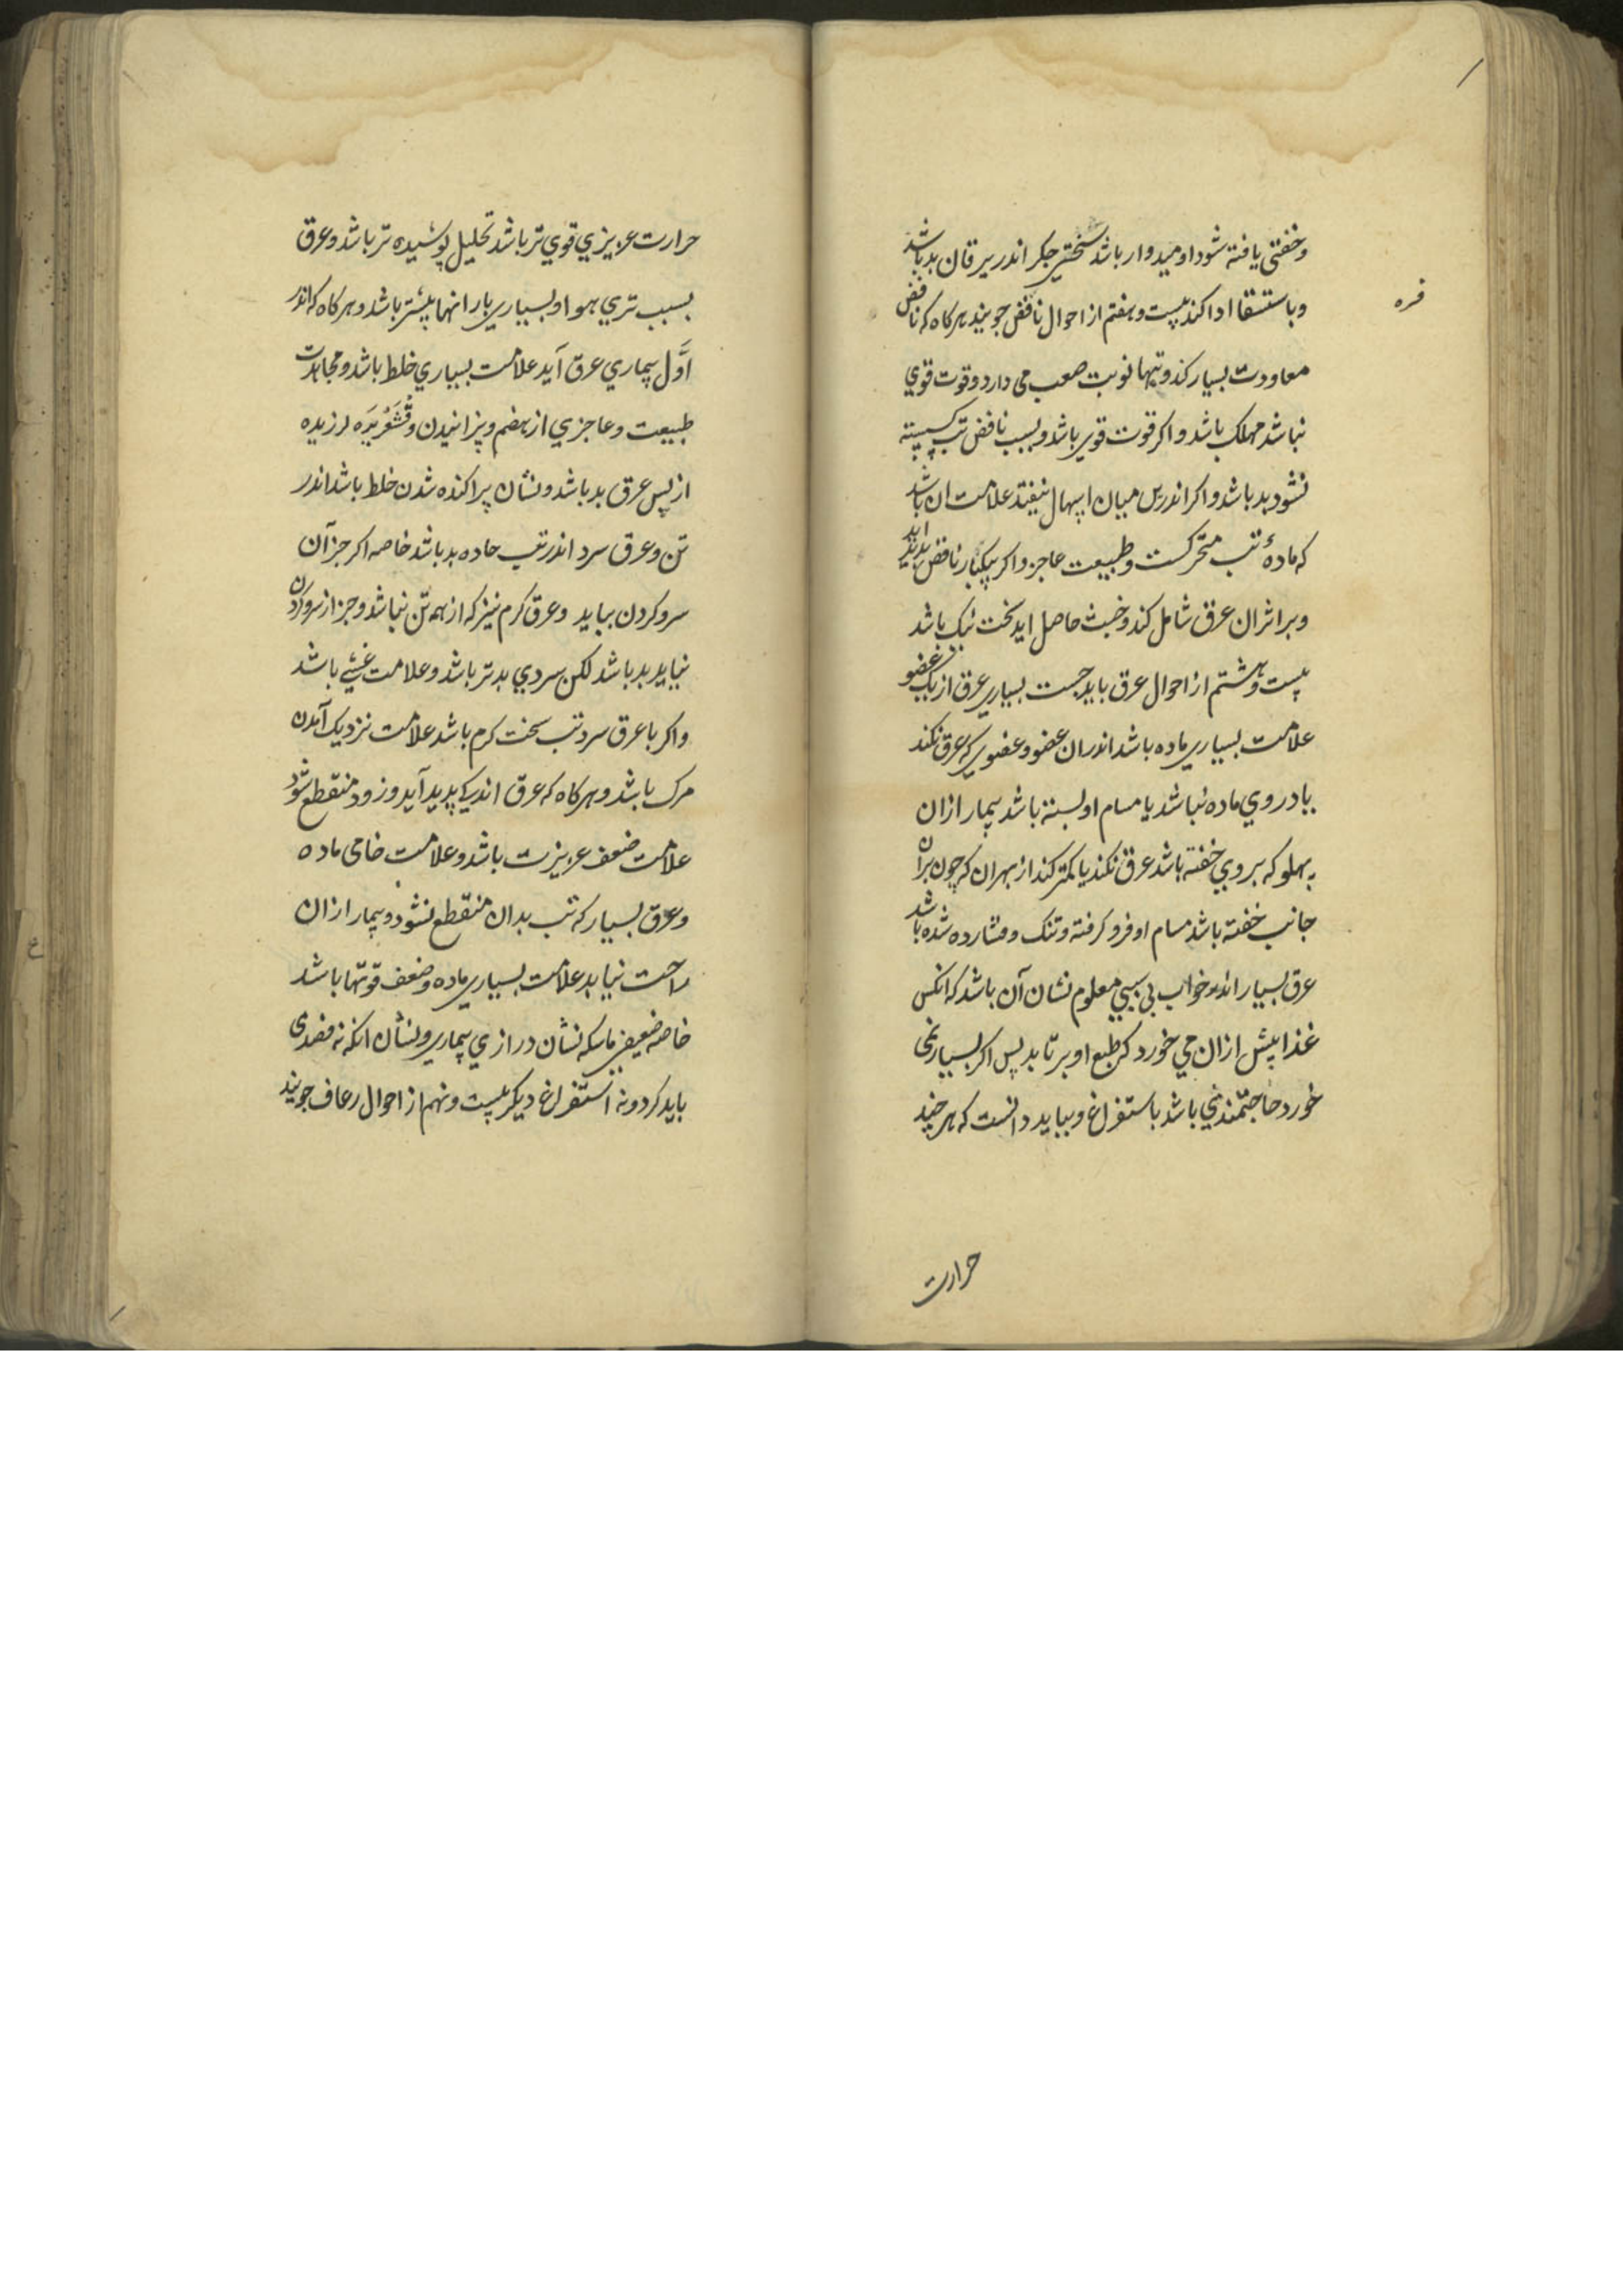 وخفتی یافته شود اومیدوار باشد سختی جکر اندر یرقان بد باشد
وباستسقا ادا کند بیست وهفتم از احوال نافض جویند هرکاه که نافض
فره
معاودت بسیار کند وتبها نوبت صعب می دارد وقوت قوي
نباشد مهلک باشد واکر قوت قوی باشد وبسبب نافض تب کسسته
نشود بد باشد واکر اندرین میان اسهال نیفتد علامت ان باشد
که مادهٔ تب متحرکست وطبیعت عاجز واکر بیکبار نافض پدید اید
وبر اثر ان عرق شامل کند وخفت حاصل اید سخت نیک باشد
بیست وهشتم از احوال عرق باید جست بسیاری عرق از یک عضو
علامت بسیاری ماده باشد اندران عضو وعضوی که عرق نکند
یا در وي ماده نباشد یا مسام او بسته باشد بیمار ازان
پهلو که بروي خفته باشد عرق نکند یا کمتر کند از بهر ان که چون بران
جانب خفته باشد مسام او فرو کرفته وتنک وفشارده شده باشد
عرق بسیار اندر خواب بی سببي معلوم نشان آن باشد که انکس
غذا بیش ازان می خورد که طبع او برتابد پس اکر بسیار نمی
خورد حاجتمندی باشد باستفراغ وبباید دانست که هر چند
حرارت
حرارت عریزي قوي تر باشد تحلیل پوشیده تر باشد وعرق
بسبب تري هوا وبسیاری بارانها بیشتر باشد وهرکاه که اندر
اوّل بیماري عرق آید علامت بسیاري خلط باشد ومجاهدت
طبیعت وعاجزي از هضم وپزانیدن وقُشَعْریَره لرزیده
از پس عرق بد باشد ونشان پراکنده شدن خلط باشد اندر
تن وعرق سرد اندر تب حاده بد باشد خاصه اکر جز آن
سر وکردن بیاید وعرق کرم نیز که از همه تن نباشد وجز از سر وکردن
نیاید بد باشد لکن سردي بدتر باشد وعلامت غشي باشد
واکر با عرق سرد تب سخت کرم باشد علامت نزدیک آمدن
مرک باشد وهرکاه که عرق اندکي پدید آید وزود منقطع شود
علامت ضعف عریزت باشد وعلامت خامی ماده
وعرق بسیار که تب بدان منقطع نشود وبیمار ازان
راحت نیابد علامت بسیاری ماده وضعف قوتّها باشد
خاصه ضعیفی ماسکه نشان درازي بیماری ونشان انکه نه فصدی
باید کرد ونه استفراغ دیکر بیست ونهم از احوال رعاف جویند